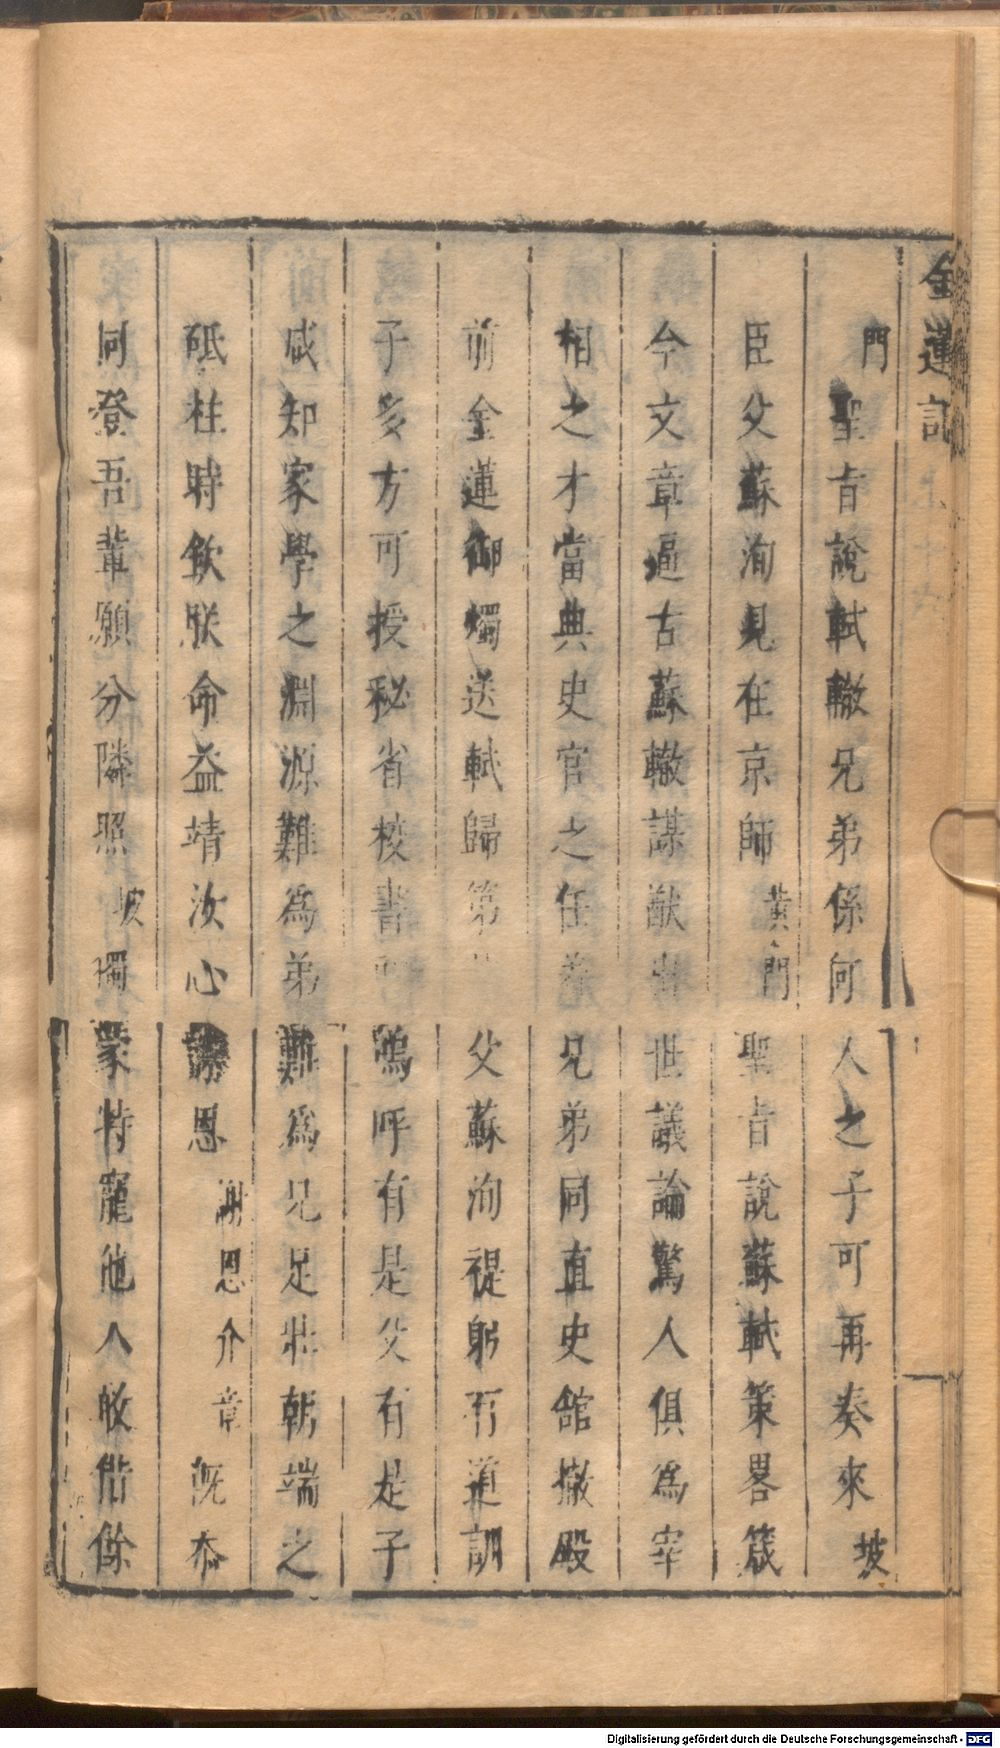 金蓮記
門 聖旨說軾轍兄弟係何人之子可再奏來 坡
臣父蘇洵見在京師 黃門 聖旨說蘇軾策畧箴
今文章逼古蘇轍謀猷出世議論驚人俱爲宰
相之才當典史官之任着兄弟同直史舘撤殿
前金蓮御燭送軾歸第 父蘇洵禔躬有道訓
子多方可授秘省校書 嗚呼有是父有是子
咸知家學之淵源難爲弟難爲兄足壯朝端之
砥柱時欽朕命益靖汝心謝恩 謝恩介 章 旣忝
同登吾輩願分隣照 坡 獨蒙特寵他人敢借餘
Digitalisierung gefördert durch die Deutsche Forschungsgemeinschaft - DFG